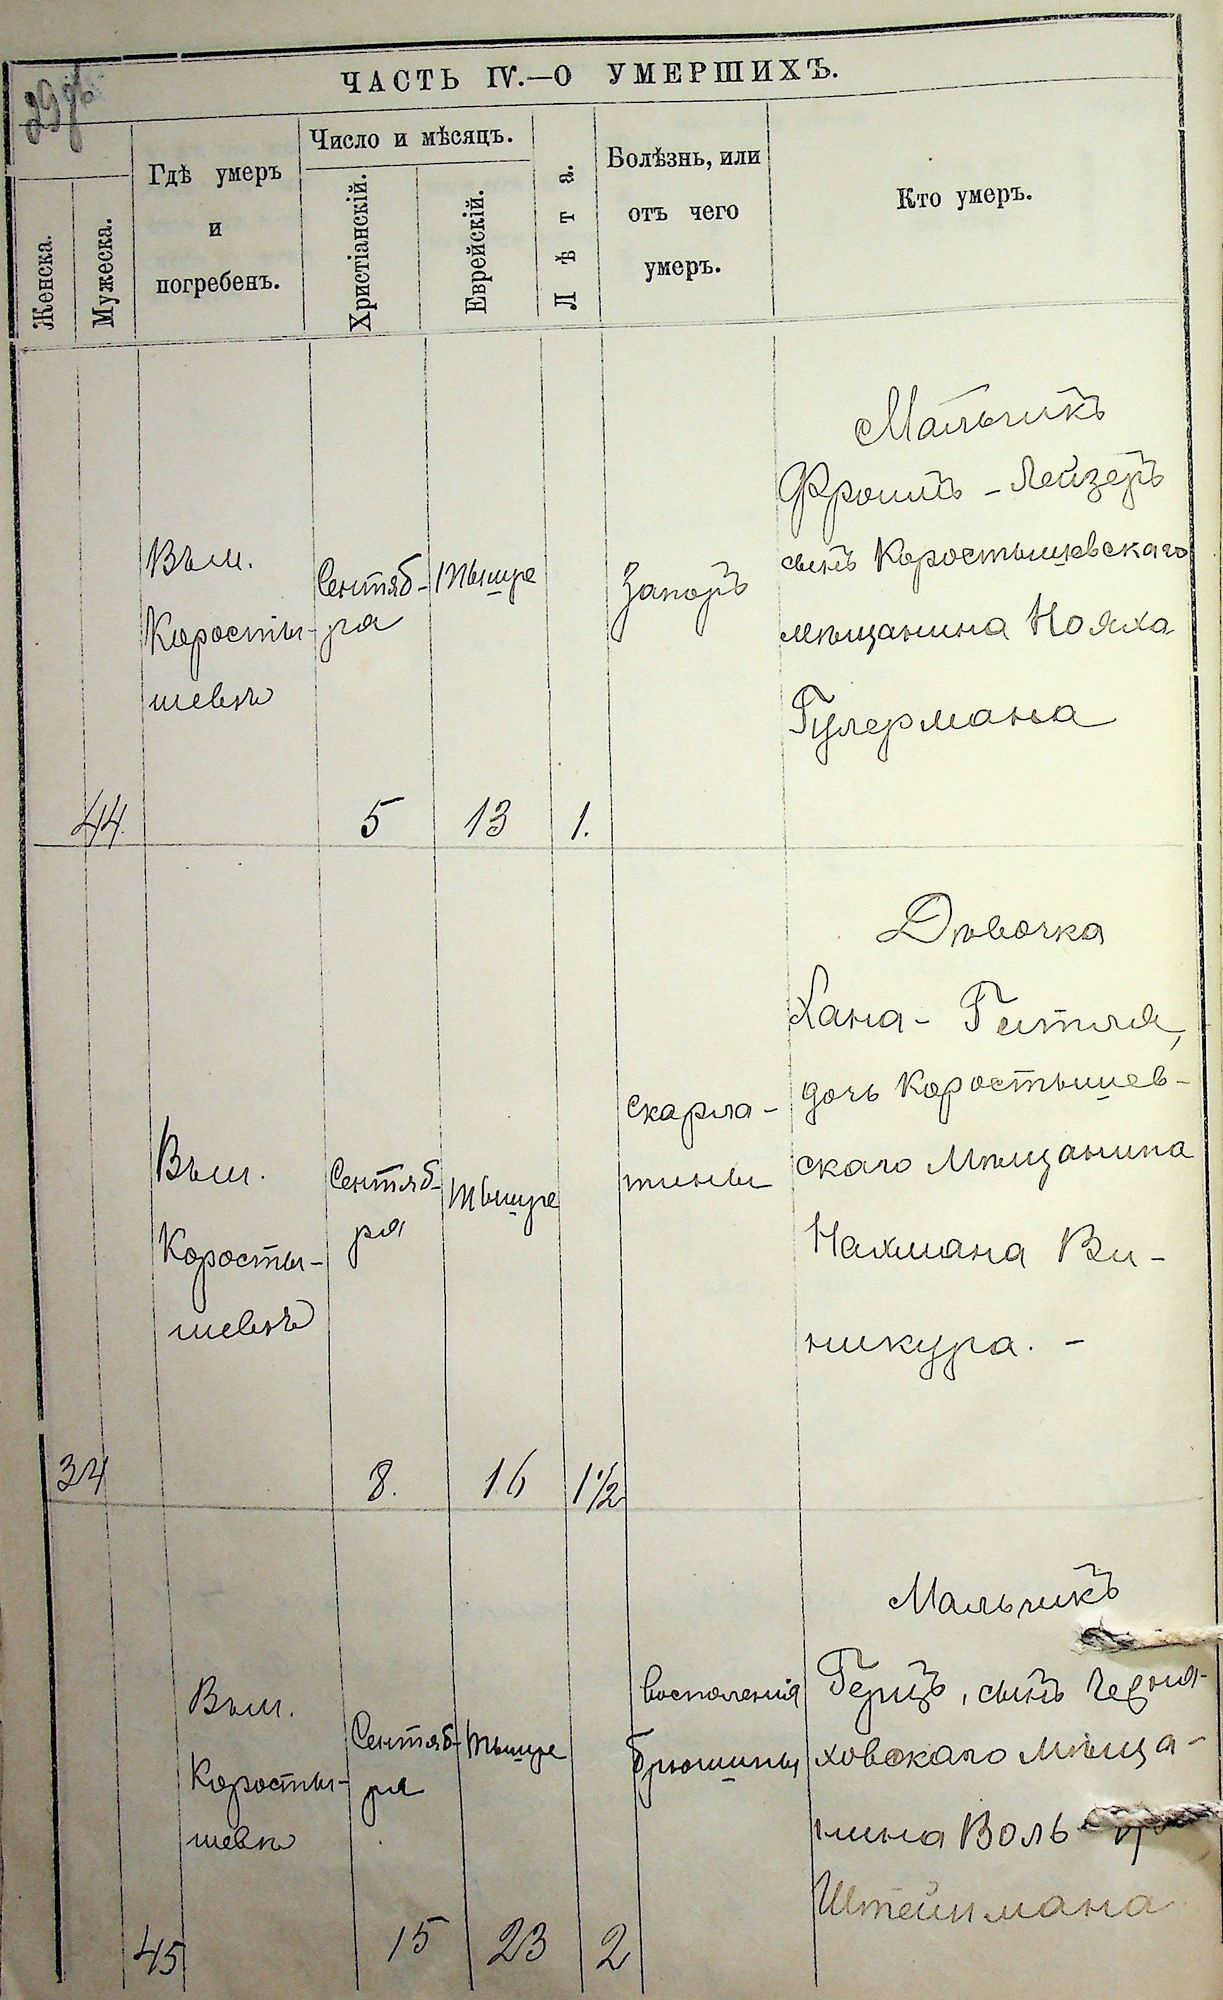 ЧАСТЬ IV.—О УМЕРШИХЪ.
Женска.
Мужеска.
Гдѣ умеръ
и
погребенъ.
Число и мѣсяцъ.
Христіанскій.
Еврейскій.
Лѣта.
Болѣзнь, или
отъ чего
умеръ.
Кто умеръ.
44.
Въ м.
Коросты-
шевѣ
Сентяб-
ря
5
Тышре
13
1.
Запоръ
Мальчикъ
Фроимъ - Лейзеръ
сынъ Коростышевскаго
мѣщанина Нояха
Гулермана
34
Въ м.
Коросты-
шевѣ
Сентяб-
ря
8.
Тышре
16
1 1/2
Скарла-
тины
Дѣвочка
Хана - Гитля,
дочь Коростышев-
скаго Мѣщанина
Нахмана Ви-
никура. -
45
Въ м.
Коросты-
шевѣ
Сентяб-
ря
15
Тышре
23
2
воспаленія
брюшины
Мальчикъ
Герцъ, сынъ Черня-
ховскаго мѣща-
нина Воль
Штейнмана